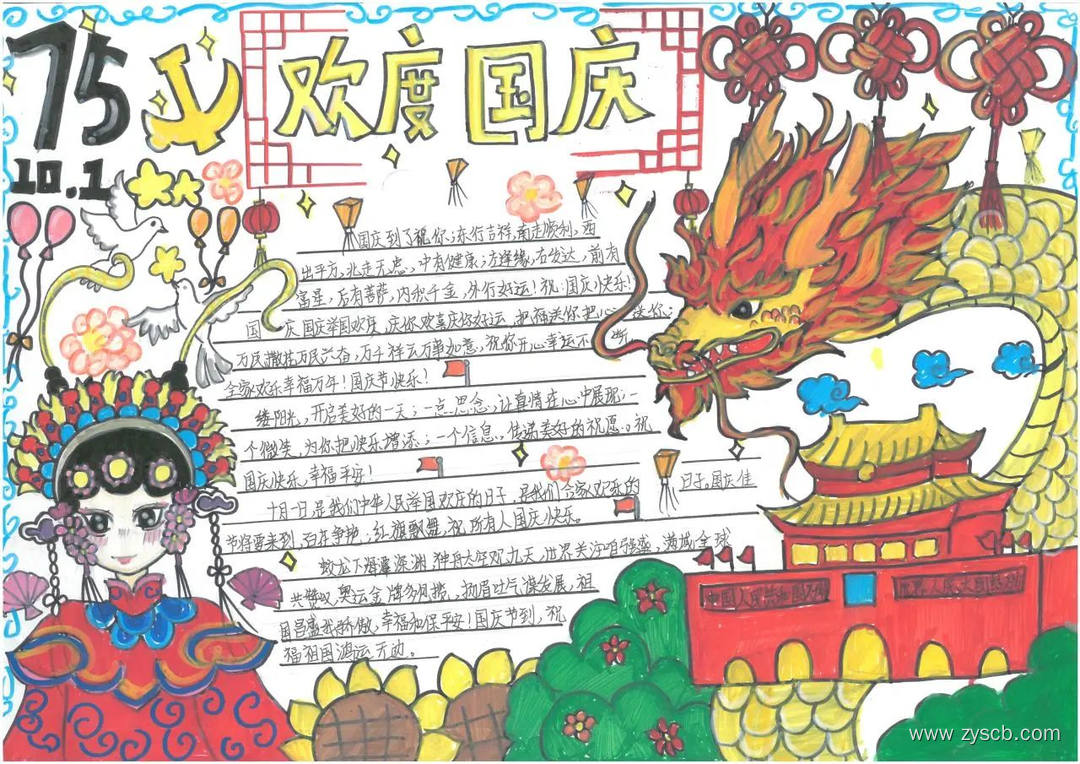 75
10.1
欢度国庆
国庆到了祝你:东行吉祥,南走顺利,西
出平安,北走无虑,中有健康;左逢缘,右发达,前有
富星,后有菩萨,内积千金,外行好运!祝:国庆快乐!
国 庆国庆举国欢度,庆你欢喜庆你好运,把福送你把心 送你;
万民 万民兴奋,万千祥云万事如意,祝你开心幸运不 断
全家欢乐幸福万年!国庆节快乐!
缕阳光,开启美好的一天;一点思念,让真情在心中展现;一
个微笑,为你把快乐增添;一个信息,传递美好的祝愿。祝
国庆快乐,幸福平安!
十月一日是我们中华人民举国欢庆的日子,是我们 家欢乐的
日子。国庆佳
节将要来到,百花争艳,红旗飘舞,祝所有人国庆快乐。
蛟龙下海 深渊 神舟太空 九天,世界关注咱强盛,满城 全球
共赞叹,奥运金牌多风揽,扬眉吐气谋发展,祖
国昌盛我骄傲,幸福和保平安!国庆节到,祝
福祖国鸿运 无边。
中国人民共和国万
世界人民大团结万
www.zyscb.com